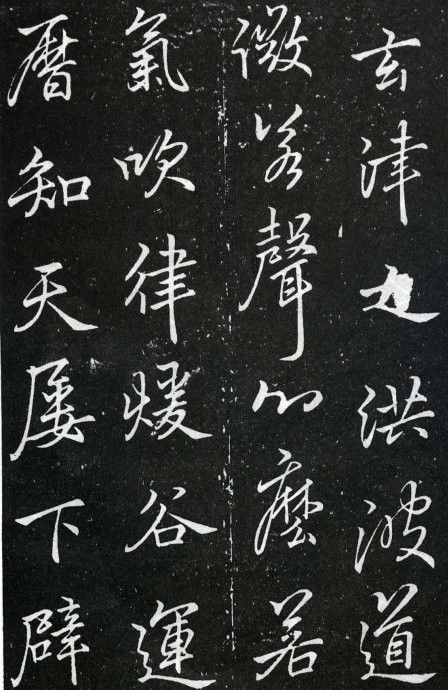 玄津洪波道
微聲若
氣吹律煖谷運
曆知天屢下辟